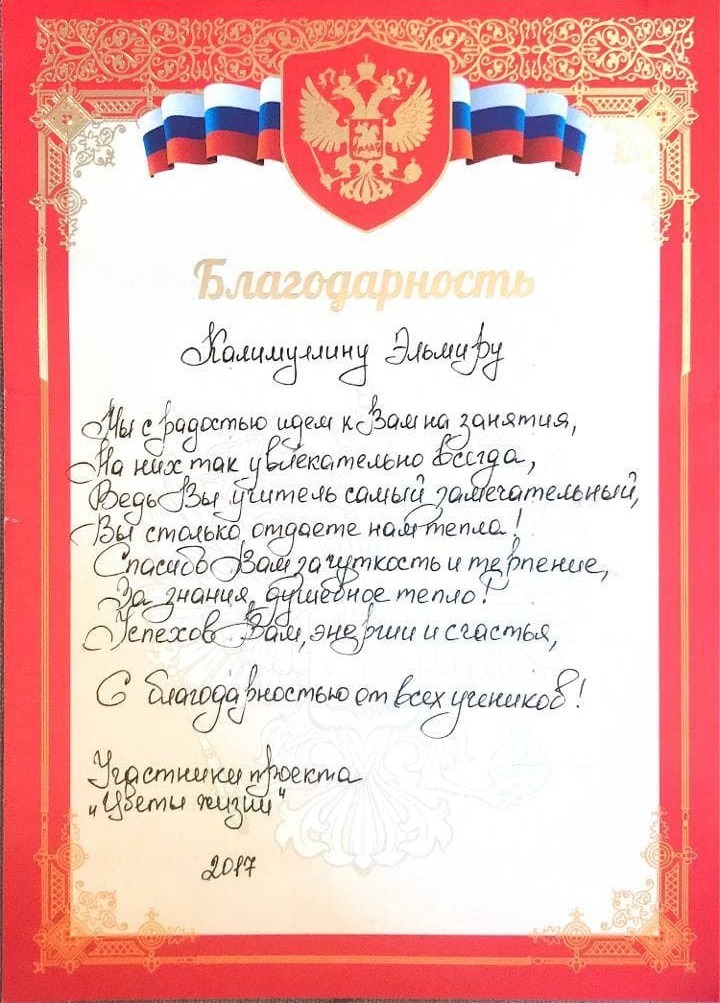 Благодарность
Калимуллину Эльмиру
Мы с радостью идем к Вам на занятия,
На них так увлекательно всегда,
Ведь Вы учитель самый замечательный,
Вы столько отдаете нам тепла!
Спасибо Вам за чуткость и терпение,
За знания, душевное тепло!
Успехов Вам, энергии и счастья,
С благодарностью от всех учеников!
Участники проекта
"Цветы жизни"
2017